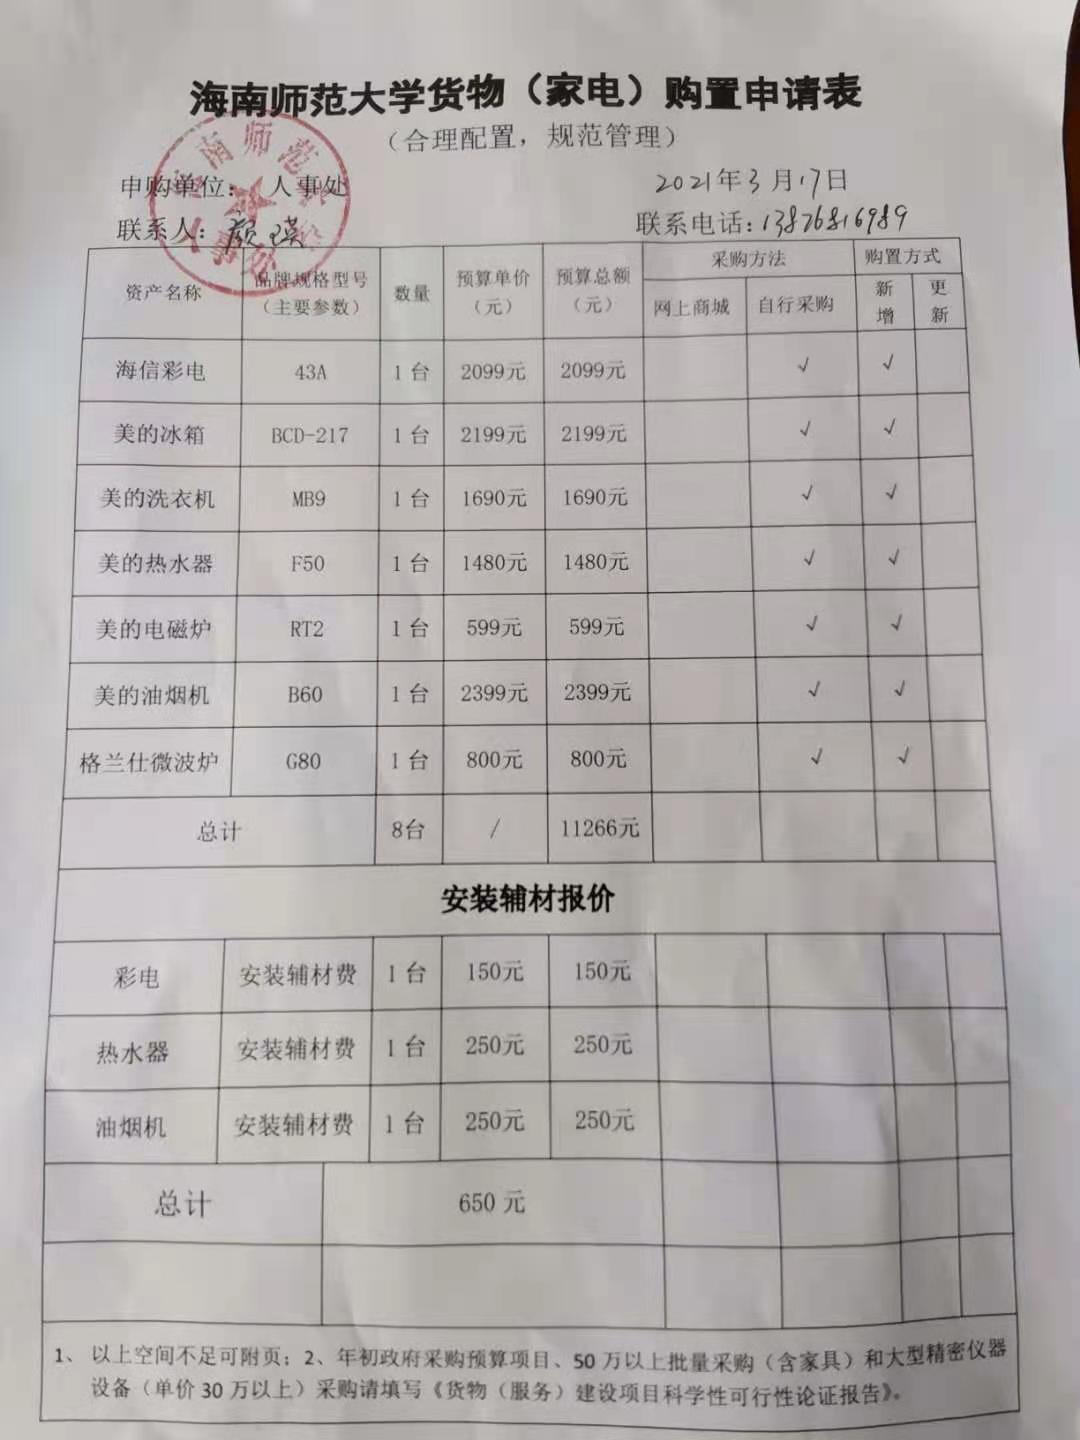 海南师范大学货物（家电）购置申请表
（合理配置，规范管理）
申购单位： 人事处 2021年3月17日
联系人：颜瑛 联系电话：13876816989
资产名称 品牌规格型号（主要参数） 数量 预算单价（元） 预算总额（元） 采购方法 购置方式
网上商城 自行采购 新增 更新
海信彩电 43A 1台 2099元 2099元 √ √
美的冰箱 BCD-217 1台 2199元 2199元 √ √
美的洗衣机 MB9 1台 1690元 1690元 √ √
美的热水器 F50 1台 1480元 1480元 √ √
美的电磁炉 RT2 1台 599元 599元 √ √
美的油烟机 B60 1台 2399元 2399元 √ √
格兰仕微波炉 G80 1台 800元 800元 √ √
总计 8台 / 11266元
安装辅材报价
彩电 安装辅材费 1台 150元 150元
热水器 安装辅材费 1台 250元 250元
油烟机 安装辅材费 1台 250元 250元
总计 650元
1、 以上空间不足可附页；2、年初政府采购预算项目、50万以上批量采购（含家具）和大型精密仪器
设备（单价30万以上）采购请填写《货物（服务）建设项目科学性可行性论证报告》。